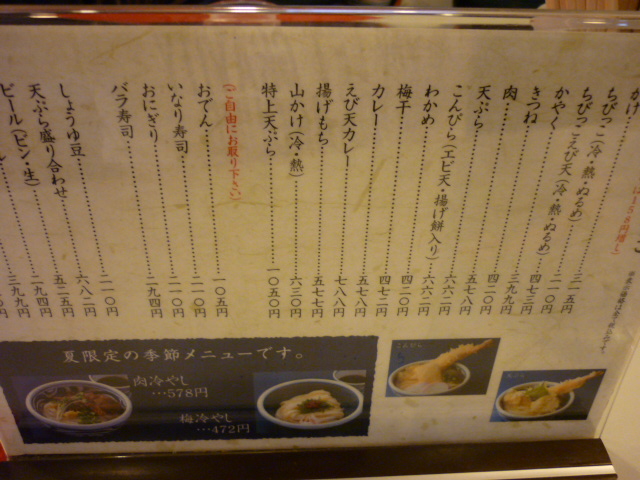 かけ……三一五円
ちびっこ(冷・熱・ぬるめ)……二一〇円
ちびっこえび天(冷・熱・ぬるめ)……四七三円
かやく……三九九円
きつね……四二〇円
肉……五七八円
天ぷら……六六二円
こんぴら(エビ天・揚げ餅入り)…六六二円
わかめ……四二〇円
梅干……四七二円
カレー……五七八円
えび天カレー……七八八円
揚げもち……五七七円
山かけ(冷・熱)……六三〇円
特上天ぷら……一〇五〇円
(ご自由にお取り下さい)
おでん……一〇五円
いなり寿司……二一〇円
おにぎり……二一〇円
バラ寿司……二九四円
しょうゆ豆……二一〇円
天ぷら盛り合わせ……六八二円
ビール(ビン・生)……五二五円
二九四円
三九九円
夏限定の季節メニューです。
肉冷やし
…578円
梅冷やし
…472円